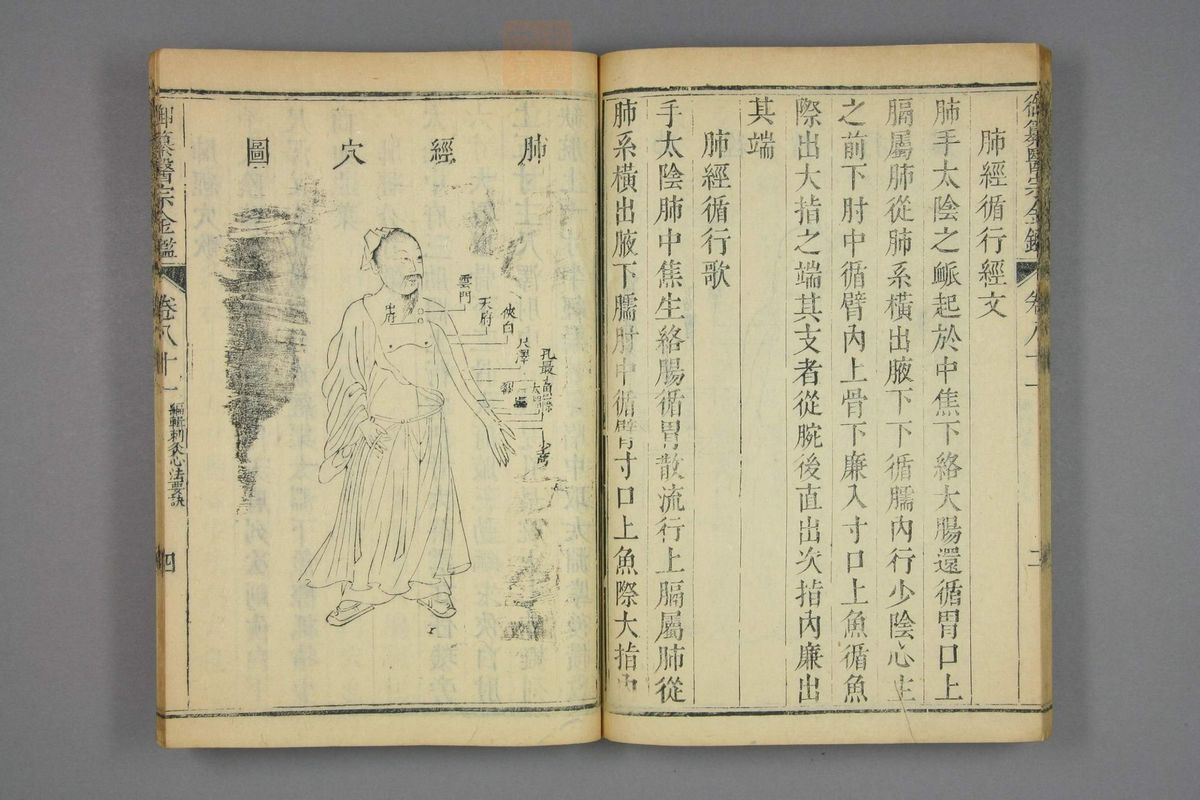 御纂醫宗金鑑
卷八十一
肺經循行經文
肺手太陰之脈起於中焦下絡大腸還循胃口上
膈屬肺從肺系橫出腋下下循臑內行少陰心主
之前下肘中循臂內上骨下廉入寸口上魚循魚
際出大指之端其支者從腕後直出次指內廉出
其端
肺經循行歌
手太陰肺中焦生絡腸循胃散流行上膈屬肺從
肺系橫出腋下臑肘中循臂寸口上魚際大指內
肺經穴圖
雲門
中府
天府
俠白
尺澤
孔最
少商
御纂醫宗金鑑
卷八十一
編輯刺灸心法要訣
四